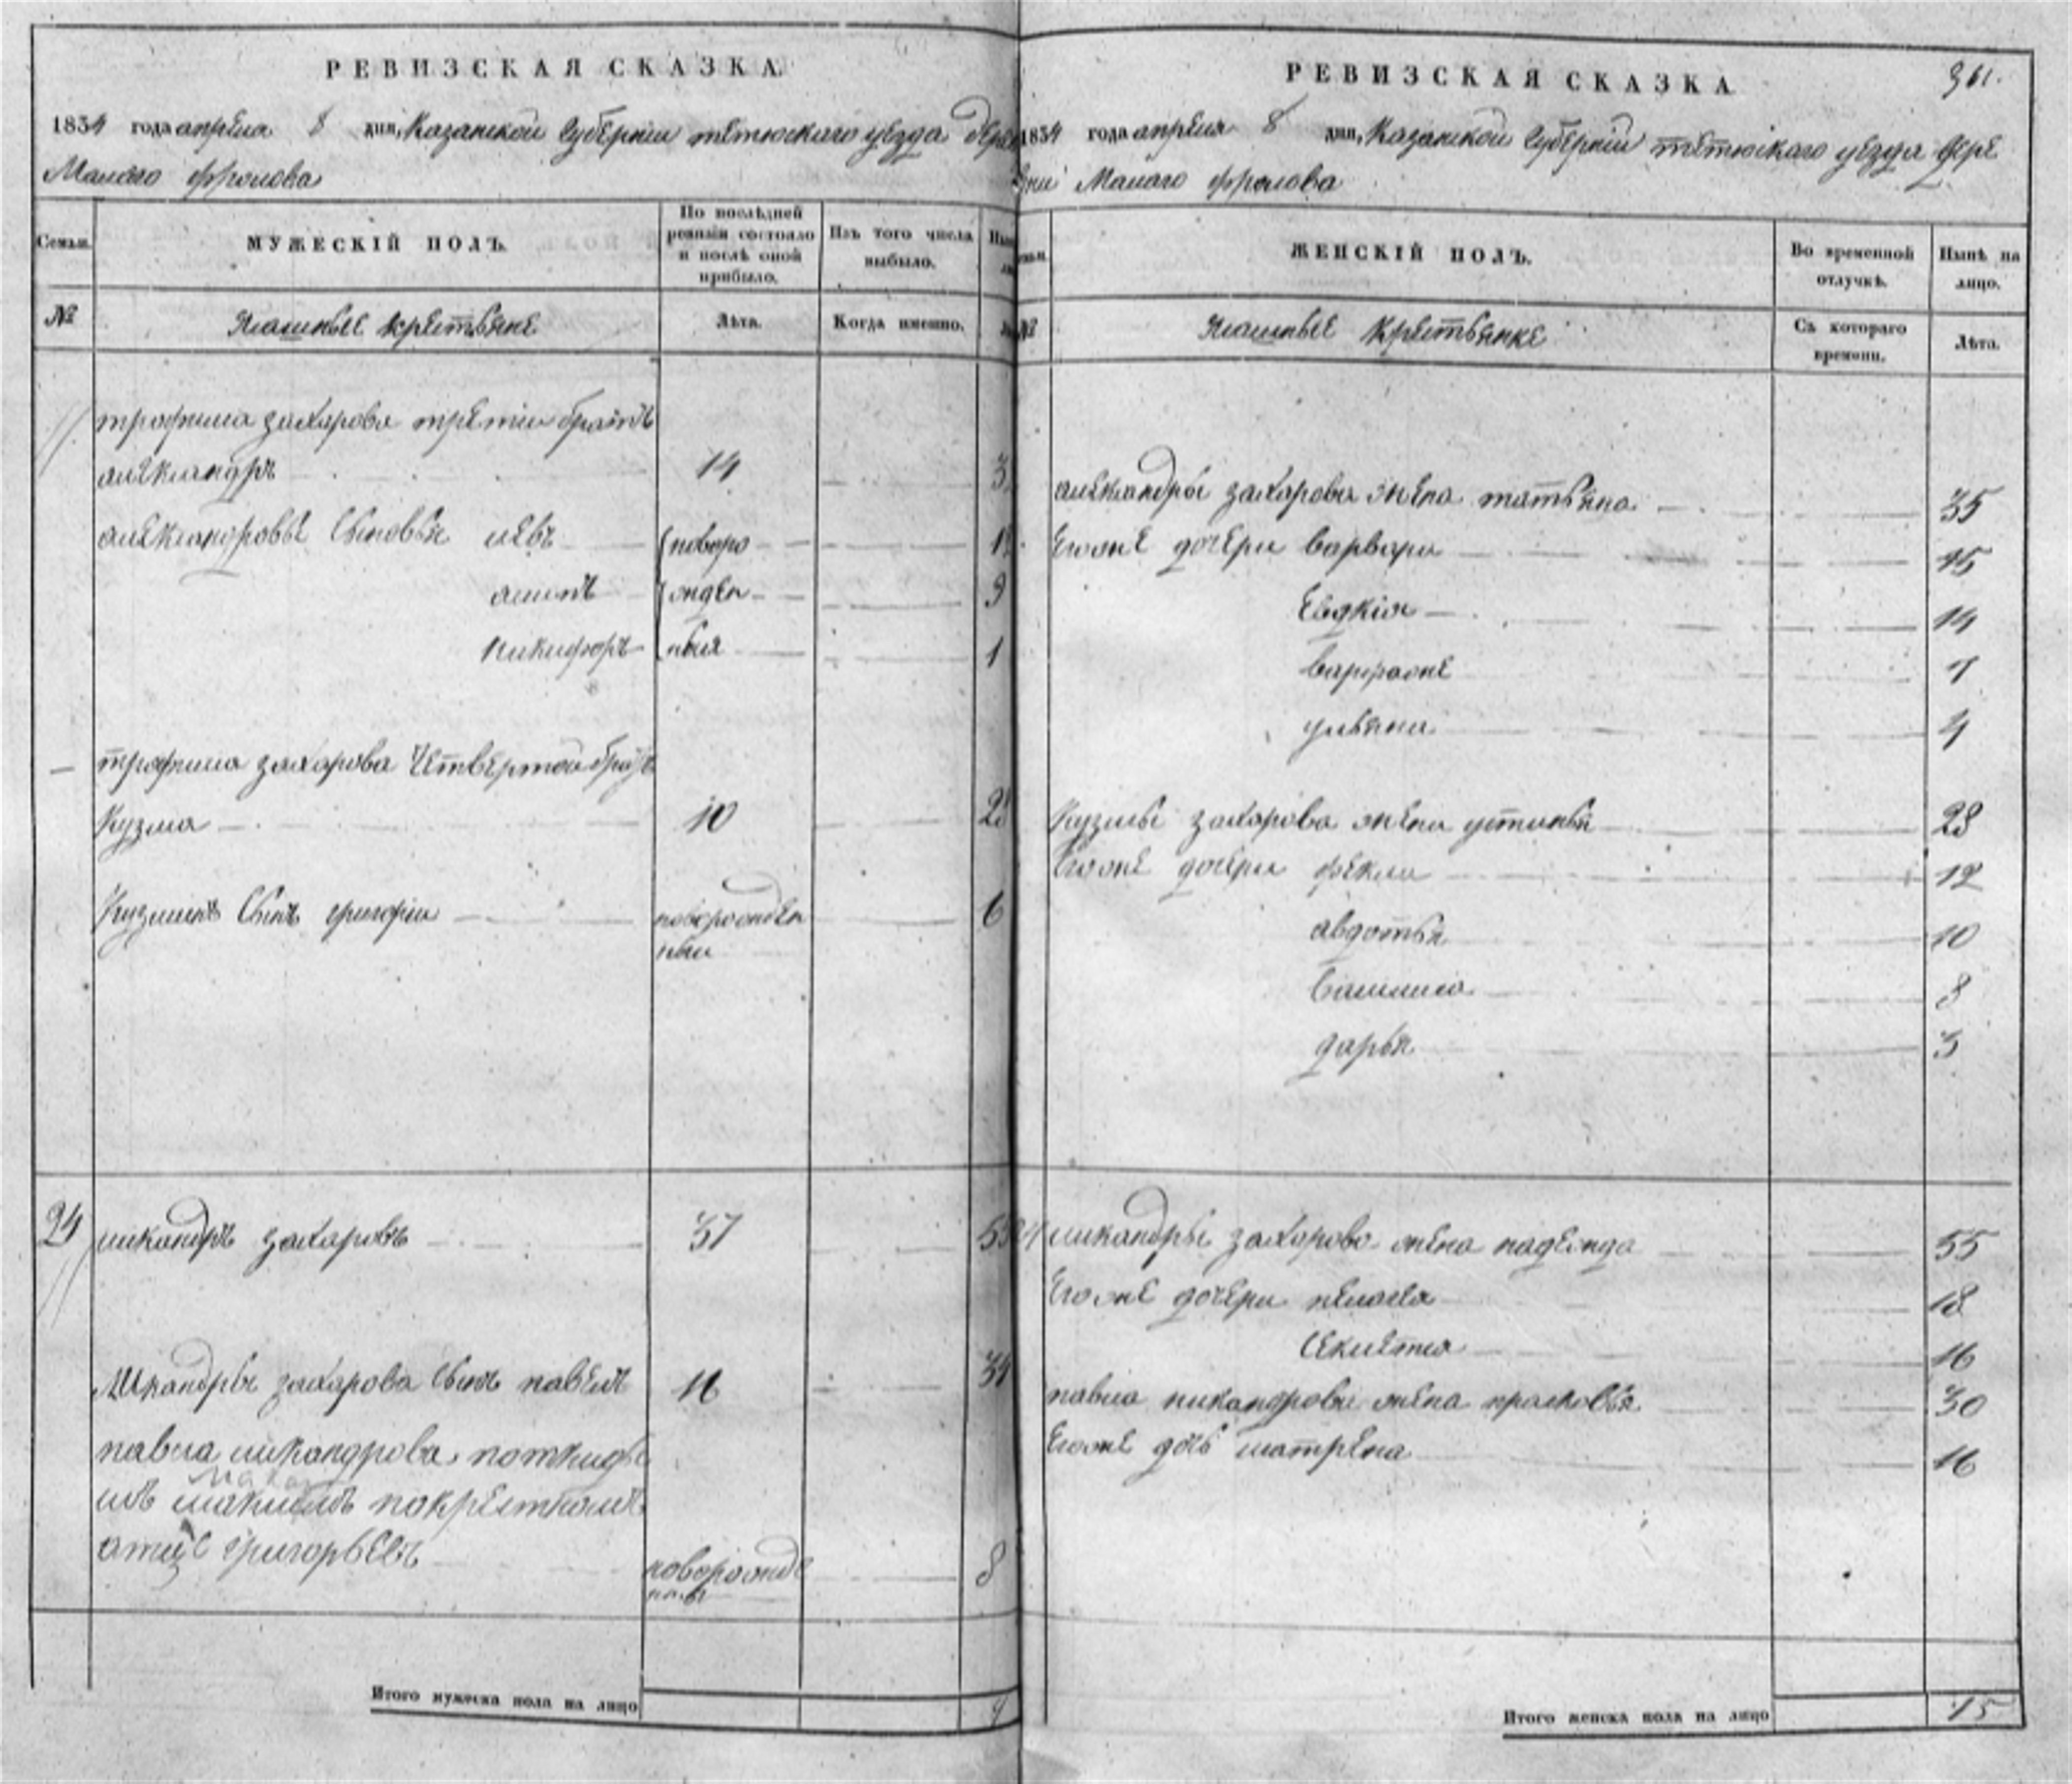 РЕВИЗСКАЯ СКАЗКА
1834 года апреля 8 дня, Казанской Губернiи тетюскаго уезда дерев
Малаго фролова
Семьи.
МУЖЕСКIЙ ПОЛЪ.
По послѣдней ревизiи состояло и послѣ оной прибыло.
Изъ того числа выбыло.
№
Ясашные крестьяне
Лѣта.
Когда именно.
трофима захарова третiи братъ
александръ 14
александровы Сыновья левъ новоро
9
никифоръ ныя 1
трофима захарова Четвертой братъ
Кузма 10
Кузминъ Сынъ григорiи новорожден 6
ныи
24 никандръ захаровъ 37
Никандры захарова Сынъ павелъ 16
павла никандрова поткиды
покрестному
григорьевъ
новорожде 8
Итого мужеска пола на лицо
РЕВИЗСКАЯ СКАЗКА
361.
1834 года апреля 8 дня, Казанской Губернiи тетюскаго уезда дере
вни Малаго фролова
ЖЕНСКIЙ ПОЛЪ.
Во временной отлучкѣ.
Нынѣ на лицо.
№
Ясашные Крестьянке
Съ котораго времени.
Лѣта.
александры захарова жена татьяна 35
Егоже дочери варвара 15
Евдкiя 14
7
ульяна 4
Кузмы захарова жена устинья 28
Егоже дочери фекла 12
авдотья 10
Василиса 8
дарья 3
никандры захарова жена надежда 55
Егоже дочери пелагея 18
16
павла никандрова жена прасковья 30
Егоже дочь матрена 16
Итого женска пола на лицо 15